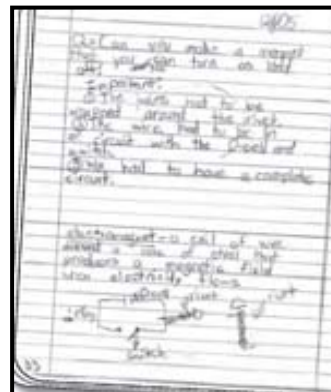 12/05
Can you make a magnet
you can turn on and
off?
Important:
The wire had to be
around the rivet.
The wire had to be in
circuit with the D-cell and
had to have a complete
circuit.
electromagnet - a coil of wire
around a core of steel that
produces a magnetic field
when electricity flows
D-cell rivet rivet
33